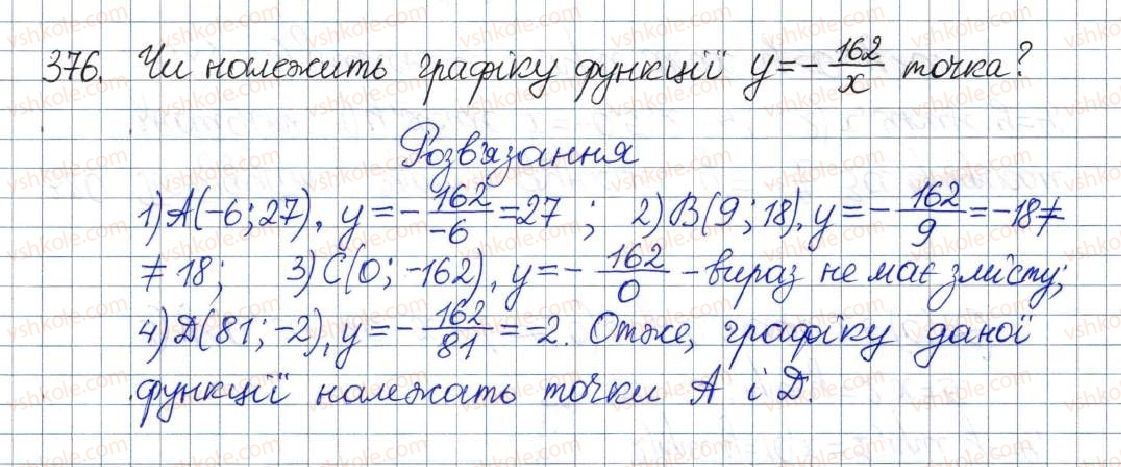 376. Чи належить графіку функції y = - 162/x точка?
Розв'язання
1) A(-6; 27), y = - 162/-6 = 27 ; 2) B(9; 18), y = - 162/9 = -18 ≠
≠ 18; 3) C(0; -162), y = - 162/0 - вираз не має змісту;
4) D(81; -2), y = - 162/81 = -2. Отже, графіку даної
функції належать точки A і D.